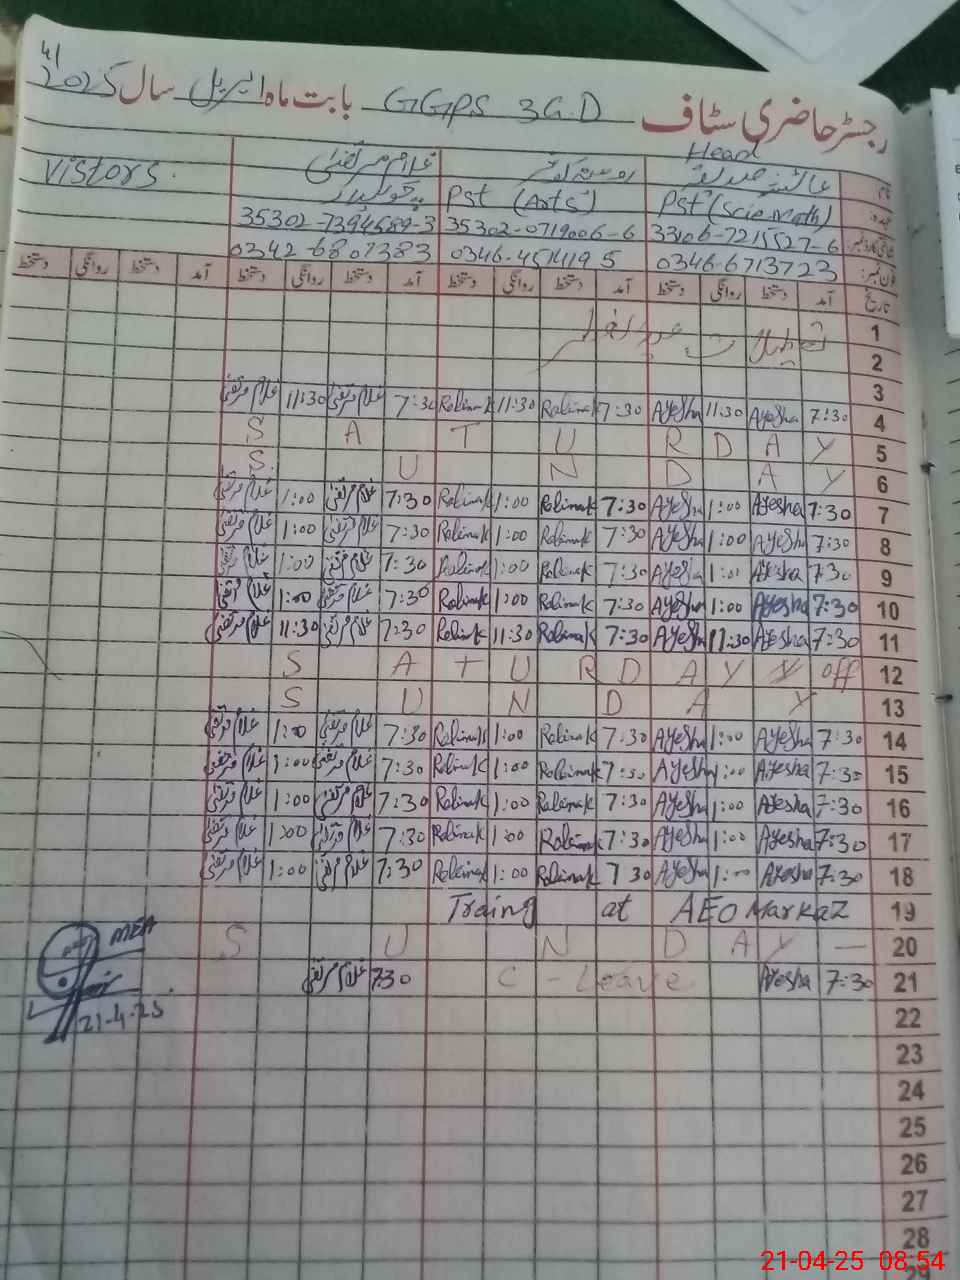 41
رجسٹر حاضری سٹاف GGPS 3G.D بابت ماہ اپریل سال 2025
Head
نام عائشہ صدیقہ غلام مرتضیٰ Vistors.
عہدہ Pst (Sci-Math) Pst (Arts) چوکیدار
شناختی کارڈ نمبر 33106-7215527-6 35302-0719006-6 35302-7394689-3
فون نمبر 0346-6713723 0346-4514195 0342-6807383
تاریخ آمد دستخط روانگی دستخط آمد دستخط روانگی دستخط آمد دستخط روانگی دستخط آمد دستخط روانگی دستخط
1 تعطیلات عید الفطر
2
3
4 7:30 Ayesha 11:30 Ayesha 7:30 Robinak 11:30 Robinak 7:30 غلام مرتضیٰ 11:30 غلام مرتضیٰ
5 S A T U R D A Y
6 S U N D A Y
7 7:30 Ayesha 1:00 Ayesha 7:30 Robinak 1:00 Robinak 7:30 غلام مرتضیٰ 1:00 غلام مرتضیٰ
8 7:30 Ayesha 1:00 Ayesha 7:30 Robinak 1:00 Robinak 7:30 غلام مرتضیٰ 1:00 غلام مرتضیٰ
9 7:30 Ayesha 1:00 Ayesha 7:30 Robinak 1:00 Robinak 7:30 غلام مرتضیٰ 1:00 غلام مرتضیٰ
10 7:30 Ayesha 1:00 Ayesha 7:30 Robinak 1:00 Robinak 7:30 غلام مرتضیٰ 1:00 غلام مرتضیٰ
11 7:30 Ayesha 11:30 Ayesha 7:30 Robinak 11:30 Robinak 7:30 غلام مرتضیٰ 11:30 غلام مرتضیٰ
12 S A T U R D A Y off
13 S U N D A Y
14 7:30 Ayesha 1:00 Ayesha 7:30 Robinak 1:00 Robinak 7:30 غلام مرتضیٰ 1:00 غلام مرتضیٰ
15 7:30 Ayesha 1:00 Ayesha 7:30 Robinak 1:00 Robinak 7:30 غلام مرتضیٰ 1:00 غلام مرتضیٰ
16 7:30 Ayesha 1:00 Ayesha 7:30 Robinak 1:00 Robinak 7:30 غلام مرتضیٰ 1:00 غلام مرتضیٰ
17 7:30 Ayesha 1:00 Ayesha 7:30 Robinak 1:00 Robinak 7:30 غلام مرتضیٰ 1:00 غلام مرتضیٰ
18 7:30 Ayesha 1:00 Ayesha 7 30 Robinak 1:00 Robinak 7:30 غلام مرتضیٰ 1:00 غلام مرتضیٰ
19 Traing at AEO MarkaZ
20 S U N D A Y —
21 7:30 Ayesha C - Leave 7:30 غلام مرتضیٰ
MEA
21-4-25
22
23
24
25
26
27
28
29
21-04-25 08:54